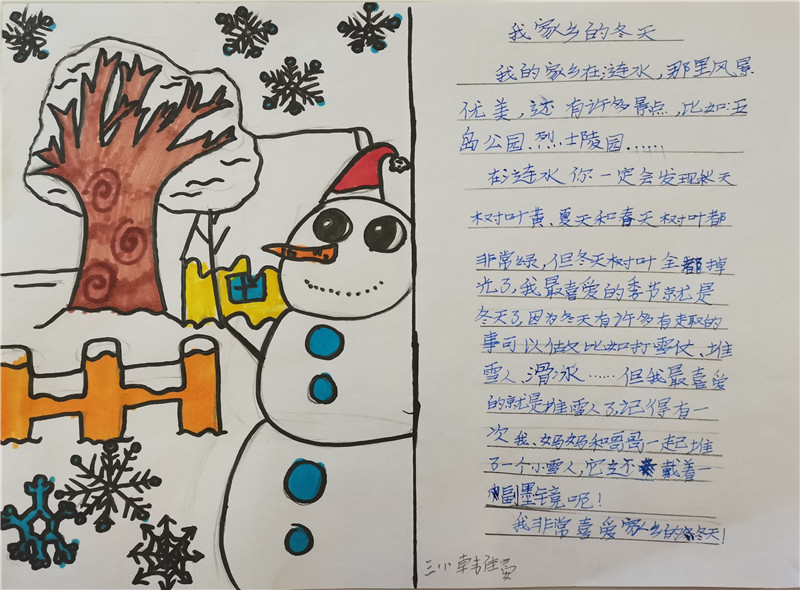 我家乡的冬天
我的家乡在涟水,那里风景
优美,还有许多景点,比如五
岛公园、烈士陵园……
在涟水你一定会发现秋天
树叶黄、夏天和春天树叶都
非常绿,但冬天树叶全都掉
光了。我最喜爱的季节就是
冬天了,因为冬天有许多有趣的
事可以做比如打雪仗、堆
雪人、滑冰……但我最喜爱
的就是堆雪人了,记得有一
次我、妈妈和哥哥一起堆
了一个小雪人,它还戴着一
幅墨镜呢!
我非常喜爱家乡的冬天!
三小 韩